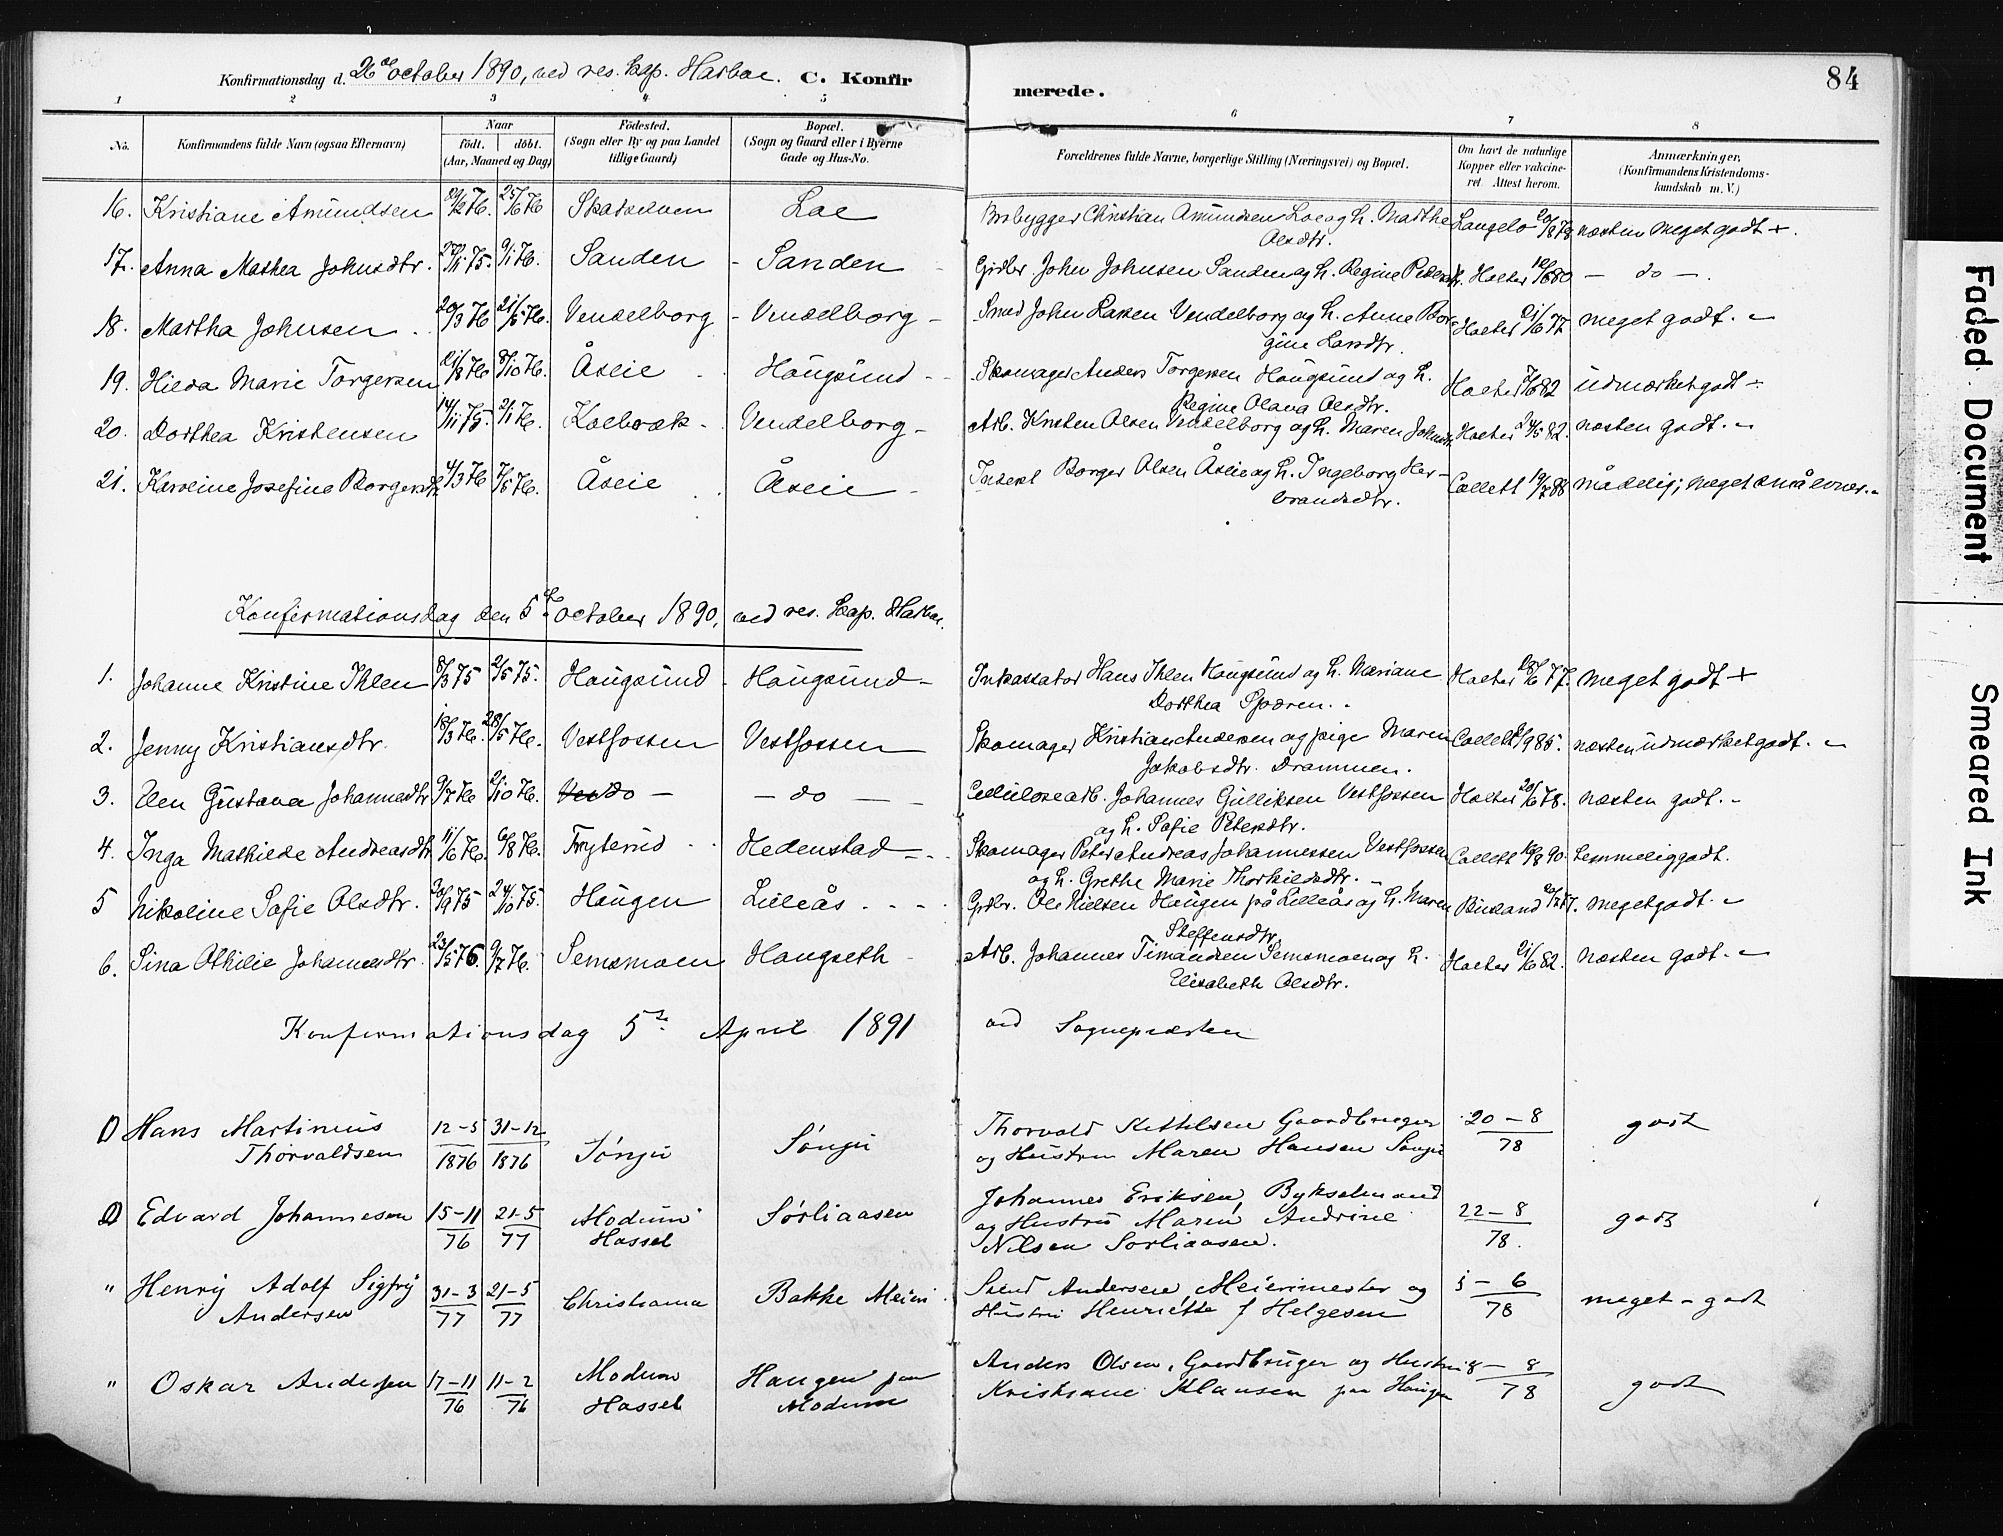 Konfirmationsdag d. 26de october 1890, ved res. kap. Harboe. C. Konfirmerede. 84
1 2 3 4 5 6 7 8
No. Konfirmandens fulde Navn (ogsaa Efternavn) Naar födt. döbt. (Aar, Maaned og Dag) Födested. (Sogn eller By og paa Landet tillige Gaard) Bopæl. (Sogn og Gaard eller i Byerne Gade og Hus-No. Forældrenes fulde Navne, borgerlige Stilling (Næringsvei) og Bopæl. Om havt de naturlige Kopper eller vakcineret. Attest herom. Anmærkninger. (Konfirmandens Kristendomskundskab m. V.)
16. Kristiane Amundsen 25/6 76 Loe Brobygger Christian Amundsen Loe og h. Marthe Olsdtr. Langelo næsten meget godt +.
17. Anna Mathea Johnsdtr. 75. 9/1 76. Sanden - Sanden Grdbr. John Johnsen Sanden og h. Regine Holter 80 - do -.
18. Martha Johnsen 20/3 76 21/5 76. Vendelborg - Vendelborg - Smed John Larsen Vendelborg og h. Anne Borgine Larsdtr. Holter 21/6 77 meget godt. -
19. Hilda Marie Torgersen 21/8 76 8/10 76. Åslie Hougsund - Skomager Anders Torgersen Hougsund og h. Regine Olava Olsdtr. Holter 82 udmærket godt -
20. Dorthea Kristensen 14/11 75. 2/1 76. Kolbræk - Vendelborg - Arb. Kristen Olsen Vendelborg og h. Maren Johnsdtr. Holter 24/5 82. næsten godt. -
21. Karoline Josefine Borgersdtr. 4/3 76 7/5 76. Åslie Åslie - Inderst Borger Olsen Åslie og h. Ingeborg Herbrandsdtr. Collett 19/7 88 mådelig; meget små evner. -
Konfirmationsdag den 5te october 1890, ved res. kap. Harboe.
1. Johanne Kristine Ihlen 8/3 75 2/5 75. Hougsund - Hougsund - Inkassator Hans Ihlen Hougsund og h. Mariane Dorthea Holter 18/6 77. meget godt +
2. Jenny Kristiansdtr. 18/3 76. 28/5 76. Vestfossen Vestfossen Skomager Kristian Andersen og pige Maren Jakobsdtr. Drammen. Collett 85. næsten udmærket godt. -
3. Elen Gustava Johannesdtr. 9/7 76 2/10 76. do - - do - Cellulosearb. Johannes Gulliksen Vestfossen og h. Sofie Petersdtr. Holter 20/6 78. næsten godt. -
4. Inga Mathilde Andreasdtr. 11/6 76. 6/8 76. Fryterud Hedenstad - Skomager Peter Andreas Johannessen Vestfossen og h. Grethe Marie Thorkildsdtr. Collett 90. temmelig godt.
5 Nikoline Sofie Olsdtr. 20/9 75 24/10 75. Hougen Lilleås Grdbr. Ole Nielsen Hougen på Lilleås og h. Maren Steffensdtr. Buland meget godt. -
6. Sina Othilie Johannesdtr. 23/5 76 9/7 76. Semsmoen Hougseth Arb. Johannes Semsmoen og h. Elisabeth Olsdtr. Holter 21/6 82. næsten godt. -
Konfirmationsdag 5te April 1891 ved Sognepresten
1) Hans Martinius Thorvaldsen 12-5 1876 31-12 1876 Sønju Sønju Thorvald Kittilsen Gaardbruger og Hustru Maren Hansen Sønju 20-8 78 godt
2) Edvard Johannesen 15-11 76 21-5 77 Modum Hassel Sørliaasen Johannes Eriksen, Bykselmand og Hustru Maren Andrine Nilsen Sørliaasen. 22-8 78. godt
" Henry Adolf Sigfry Andersen 31-3 77 21-5 77 Christiania Bakke Meieri Svend Andersen, Meierimester og Hustru Henriette f Helgesen 5-6 78 meget-godt
" Oskar Andersen 17-11 76 11-2 76 Modum Hassel Haugen paa Modum Anders Olsen, Gaardbruger og Hustru Kristiane Klausen paa Haugen 8-8 78 godt
Faded Document
Smeared Ink